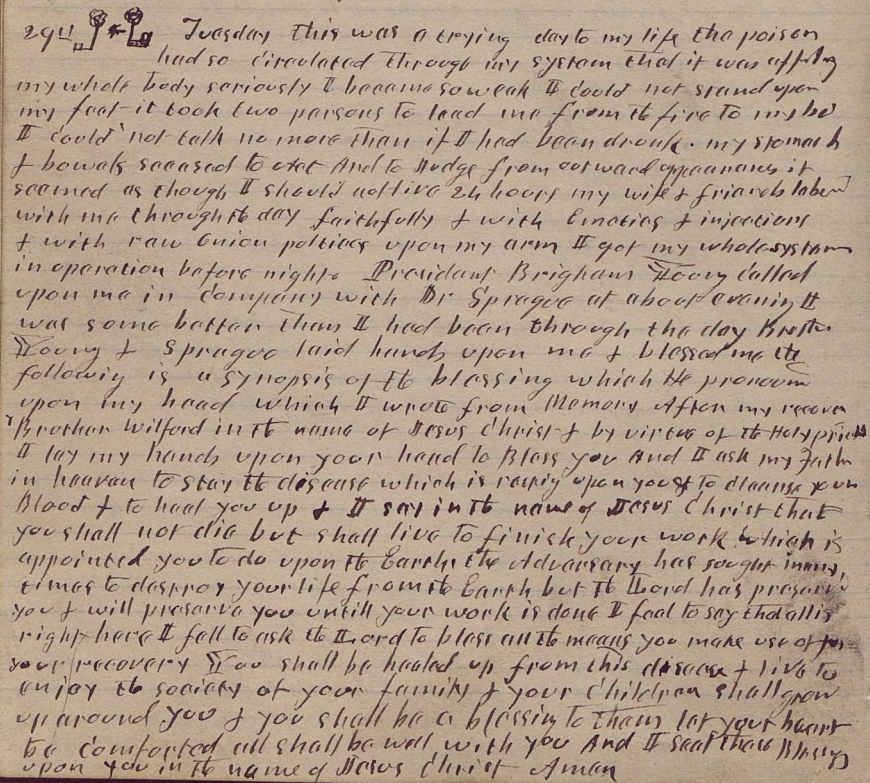 29th Tuesday this was a trying day to my life the poison
had so circulated through my system that it was affecting
my whole body seriously I became so weak I could not stand upon
my feet it took two persons to lead me from the fire to my bed
I could not talk no more than if I had been drunk. my stomach
& bowels seeased to act And to Judge from outward appearances it
seemed as though I should not live 24 hours my wife & friends labourd
with me through the day faithfully & with Emetics & injections
& with raw Onion poltices upon my arm I got my whole system
in operation before night. President Brigham Young Called
upon me in Company with Dr Sprague at about evening I
was some better than I had been through the day Brother
Young & Sprague laid hands upon me & blessed me the
following is a synopsis of the blessing which He pronoun
upon my head which I wrote from Memory After my recover
Brother Wilford in the name of Jesus Christ & by virtue of the Holy priest
I lay my hands upon your head to Bless you And I ask my Fathe
in heaven to stay the disease which is upon you & to cleanse your
Blood & to heal you up & I say in the name of Jesus Christ that
you shall not die but shall live to finish your work which is
appointed you to do upon the Earth, the Adversary has sought many
times to destroy your life from the Earth but the Lord has preserved
you & will preserve you untill your work is done I feel to say that all is
right here I fell to ask the Lord to bless all the means you make use of for
your recovery You shall be healed up from this disease & live to
enjoy the society of your family & your Children shall grow
up around you & you shall be a blessing to them let your heart
be comforted all shall be well with you And I seal these Blessings
upon you in the name of Jesus Christ Amen